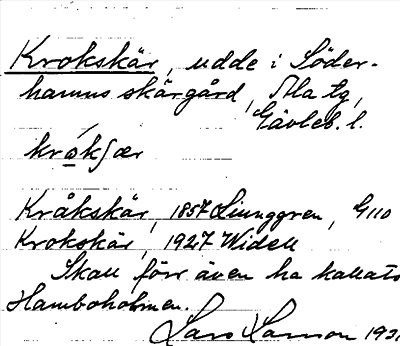 Krokskär, udde i Söder-
hamns skärgård, Ala tg,
Gävleb. l.
krókʃær
Kråkskär, 1857 Ljunggren, G110
Krokskär, 1927 Widell
Skall förr även ha kallats
Hamboholmen.
Lars Larsson 193